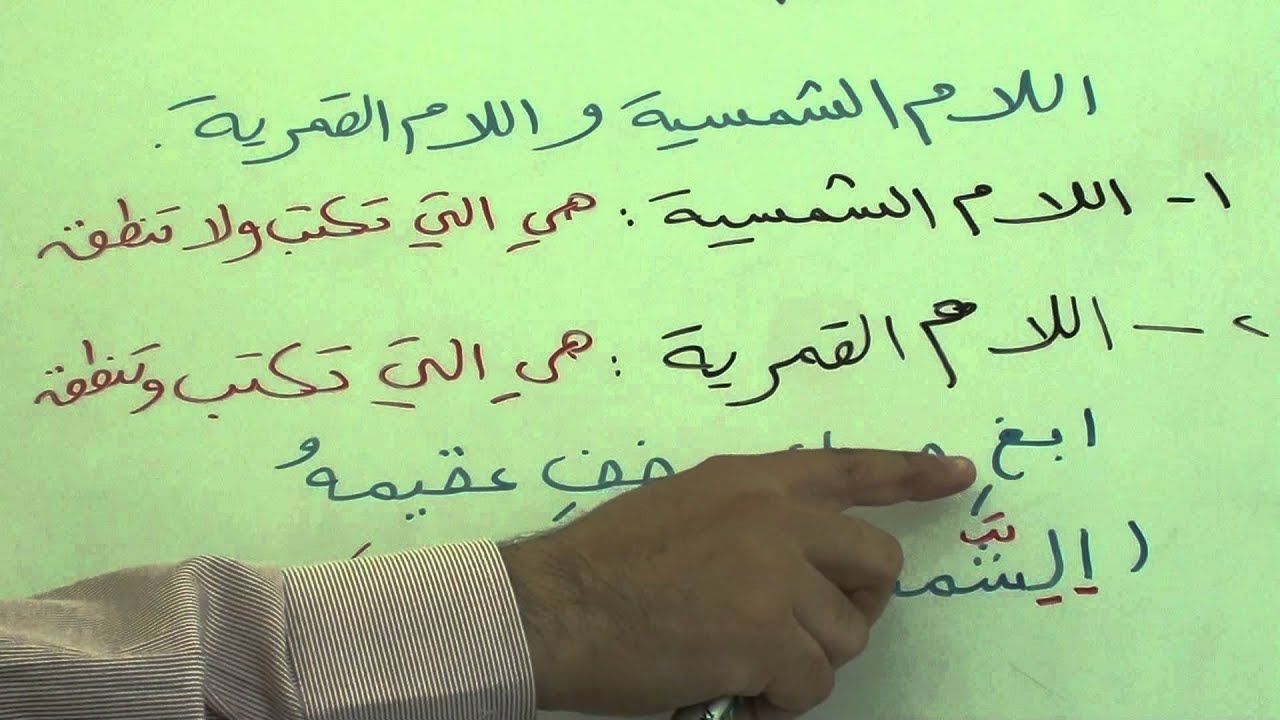 اللام الشمسية و اللام القمرية .
١- اللام الشمسية : هي التي تكتب ولا تنطق
٢- اللام القمرية : هي التي تكتب وتنطق
ابغِ خفِ عقيمهُ
( الشمـ